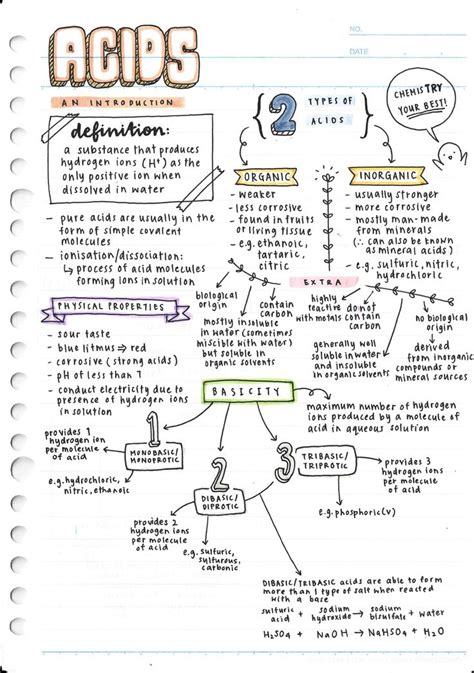 ACIDS
AN INTRODUCTION
NO.
DATE
definition:
a substance that produces
hydrogen ions (H⁺) as the
only positive ion when
dissolved in water
- pure acids are usually in the
form of simple covalent
molecules
- ionisation/dissociation:
↳ process of acid molecules
forming ions in solution
2 TYPES of ACIDS
CHEMISTRY
YOUR BEST!
ORGANIC
- weaker
- less corrosive
- found in fruits
or living tissue
- e.g. ethanoic,
tartaric,
citric
INORGANIC
- usually stronger
- more corrosive
- mostly man-made
from minerals
(∴ can also be known
as mineral acids)
- e.g. sulfuric, nitric,
hydrochloric
EXTRA
biological
origin
mostly insoluble
in water (sometimes
miscible with water)
but soluble in
organic solvents
contain
carbon
highly
reactive
with metals
do not
contain
carbon
generally well
soluble in water
and insoluble
in organic solvents
no biological
origin
derived
from inorganic
compounds or
mineral sources
PHYSICAL PROPERTIES
- sour taste
- blue litmus ⇒ red
- corrosive (strong acids)
- pH of less than 7
- conduct electricity due to
presence of hydrogen ions
in solution
BASICITY
maximum number of hydrogen
ions produced by a molecule of
acid in aqueous solution
1
MONOBASIC/
MONOPROTIC
provides 1
hydrogen ion
per molecule
of acid
e.g. hydrochloric,
nitric, ethanoic
2
DIBASIC/
DIPROTIC
provides 2
hydrogen ions
per molecule
of acid
e.g. sulfuric,
sulfurous,
carbonic
3
TRIBASIC/
TRIPROTIC
provides 3
hydrogen ions
per molecule
of acid
e.g. phosphoric(v)
DIBASIC/TRIBASIC acids are able to form
more than 1 type of salt when reacted
with a base
sulfuric acid + sodium hydroxide → sodium bisulfate + water
H₂SO₄ + NaOH → NaHSO₄ + H₂O